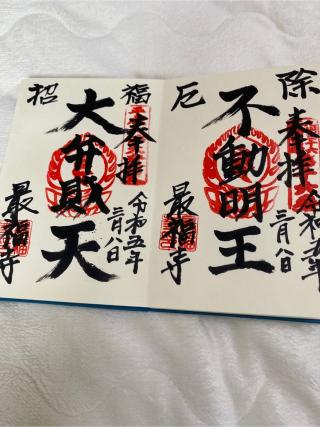 除厄
奉拝
不動明王
令和五年
三月八日
最福寺
招福
奉拝
大弁財天
令和五年
三月八日
最福寺